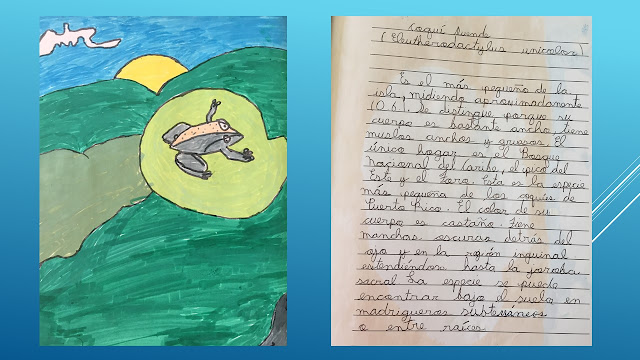 Coquí Duende
(Eleutherodactylus unicolor)
Es el más pequeño de la
isla, midiendo aproximadamente
10.61. Se distingue porque su
cuerpo es bastante ancho, tiene
muslos anchos y gruesos. El
único hogar es el Bosque
Nacional del Caribe, el pico del
Este y el Toro. Esta es la especie
más pequeña de los coquíes de
Puerto Rico. El color de su
cuerpo es castaño. Tiene
manchas oscuras detrás del
ojo y en la región inguinal
extendiéndose hasta la joroba
sacral La especie se puede
encontrar bajo el suelo en
madrigueras subterráneos
o entre raíces